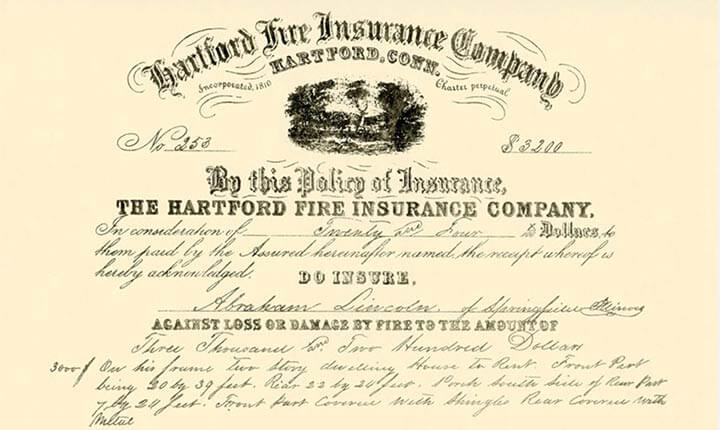 Hartford Fire Insurance Company
HARTFORD, CONN.
Incorporated, 1810 Charter perpetual
No. 253 $ 3200
By this Policy of Insurance,
THE HARTFORD FIRE INSURANCE COMPANY.
In consideration of Twenty Four Dollars, to
them paid by the Assured hereinafter named, the receipt whereof is
hereby acknowledged.
DO INSURE,
Abraham Lincoln of Springfield Illinois
AGAINST LOSS OR DAMAGE BY FIRE TO THE AMOUNT OF
Three Thousand Two Hundred Dollars
3000 On his frame two story dwelling House to Rent. Front Part
being 20 by 39 feet. Rear 22 by 24 feet. Porch South Side of Rear Part
7 by 24 feet. Front Part Covered with Shingles Rear Covered with
Metal